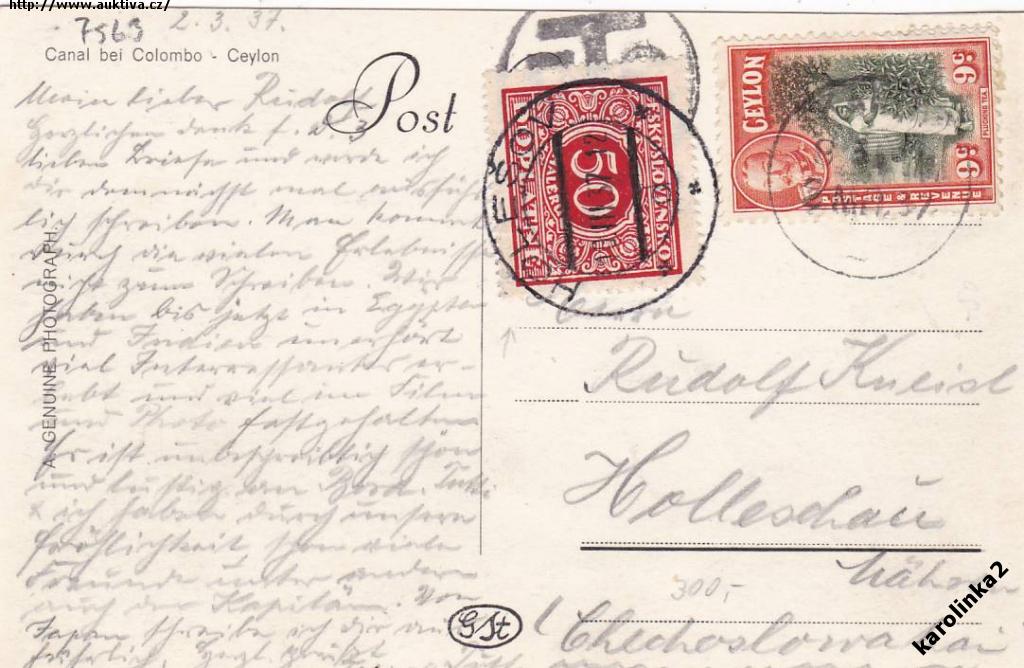 http://www.auktiva.cz/
7563 2.3.37.
Canal bei Colombo - Ceylon
Post
A GENUINE PHOTOGRAPH.
Mein lieber Rudolf
Herzlichen Dank f.
lieben Briefe und werde ich
dir demnächst mal ausführ
lich schreiben. Man kommt
durch die vielen Erlebnisse
nicht zum Schreiben. Wir
haben bis jetzt in Egypten
und Indien unerhört
viel Interressantes er-
lebt und viel im Film
und Photo festgehalten
Es ist unbeschreiblich schön
und lustig an Bord.
ich haben durch unsere
Fröhlichkeit schon viele
Freunde unter andern
auch den Kapitän. Von
Japan schreibe ich dir aus
führlich,
ČESKOSLOVENSKO
50
DOPLATIT
HALÉŘŮ
HOLEŠOV
T
CEYLON
6c
6c
POSTAGE & REVENUE
Herrn
Rudolf Kneisl
Holleschau
Mähren
Chechoslowakei
300,-
GSt
karolinka2